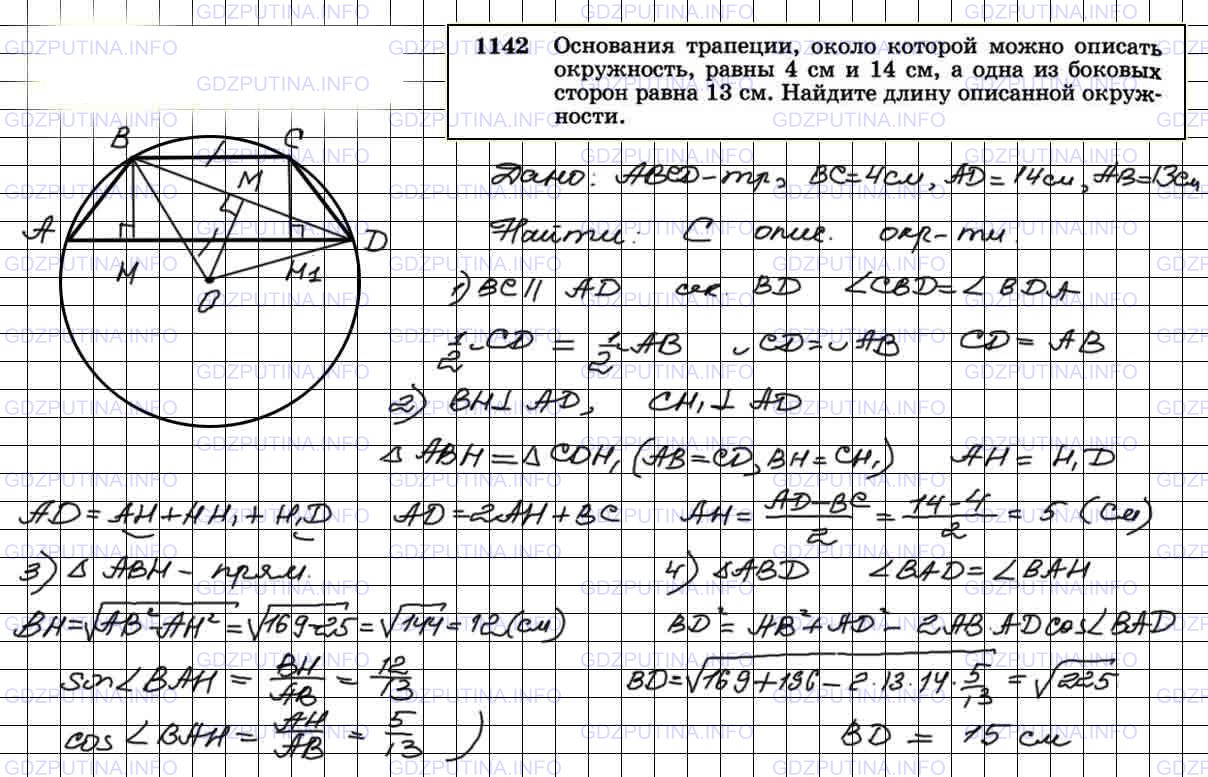 1142 Основания трапеции, около которой можно описать
окружность, равны 4 см и 14 см, а одна из боковых
сторон равна 13 см. Найдите длину описанной окруж-
ности.
B C
M
A D
M M1
O
Дано: ABCD-тр, BC=4см, AD=14см, AB=13см
Найти: C опис. окр-ти.
1) BC || AD сек. BD ∠CBD=∠BDA
1/2 ◡CD = 1/2 ◡AB ◡CD=◡AB CD=AB
2) BH⊥AD, CH₁⊥AD
△ABH=△CDH₁ (AB=CD, BH=CH₁) AH=H₁D
AD=AH+HH₁+H₁D AD=2AH+BC AH=(AD-BC)/2=(14-4)/2=5 (см)
3) △ABH - прям.
BH=√(AB²-AH²)=√(169-25)=√144=12(см)
sin∠BAH=BH/AB=12/13
cos∠BAH=AH/AB=5/13 )
4) △ABD ∠BAD=∠BAH
BD²=AB²+AD²-2AB·ADcos∠BAD
BD=√(169+196-2·13·14·5/13)=√225
BD=15 см
GDZPUTINA.INFO